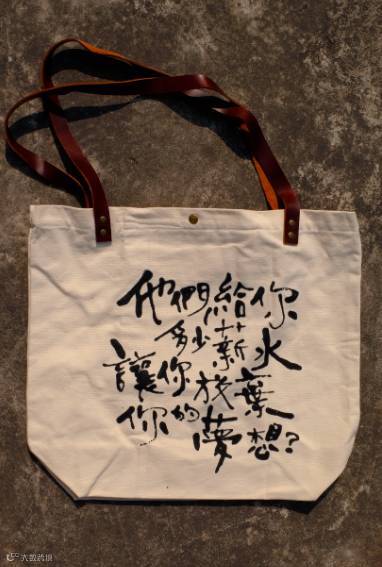 他們給你
多少薪水
讓你放棄
你的夢想?
大数跨境